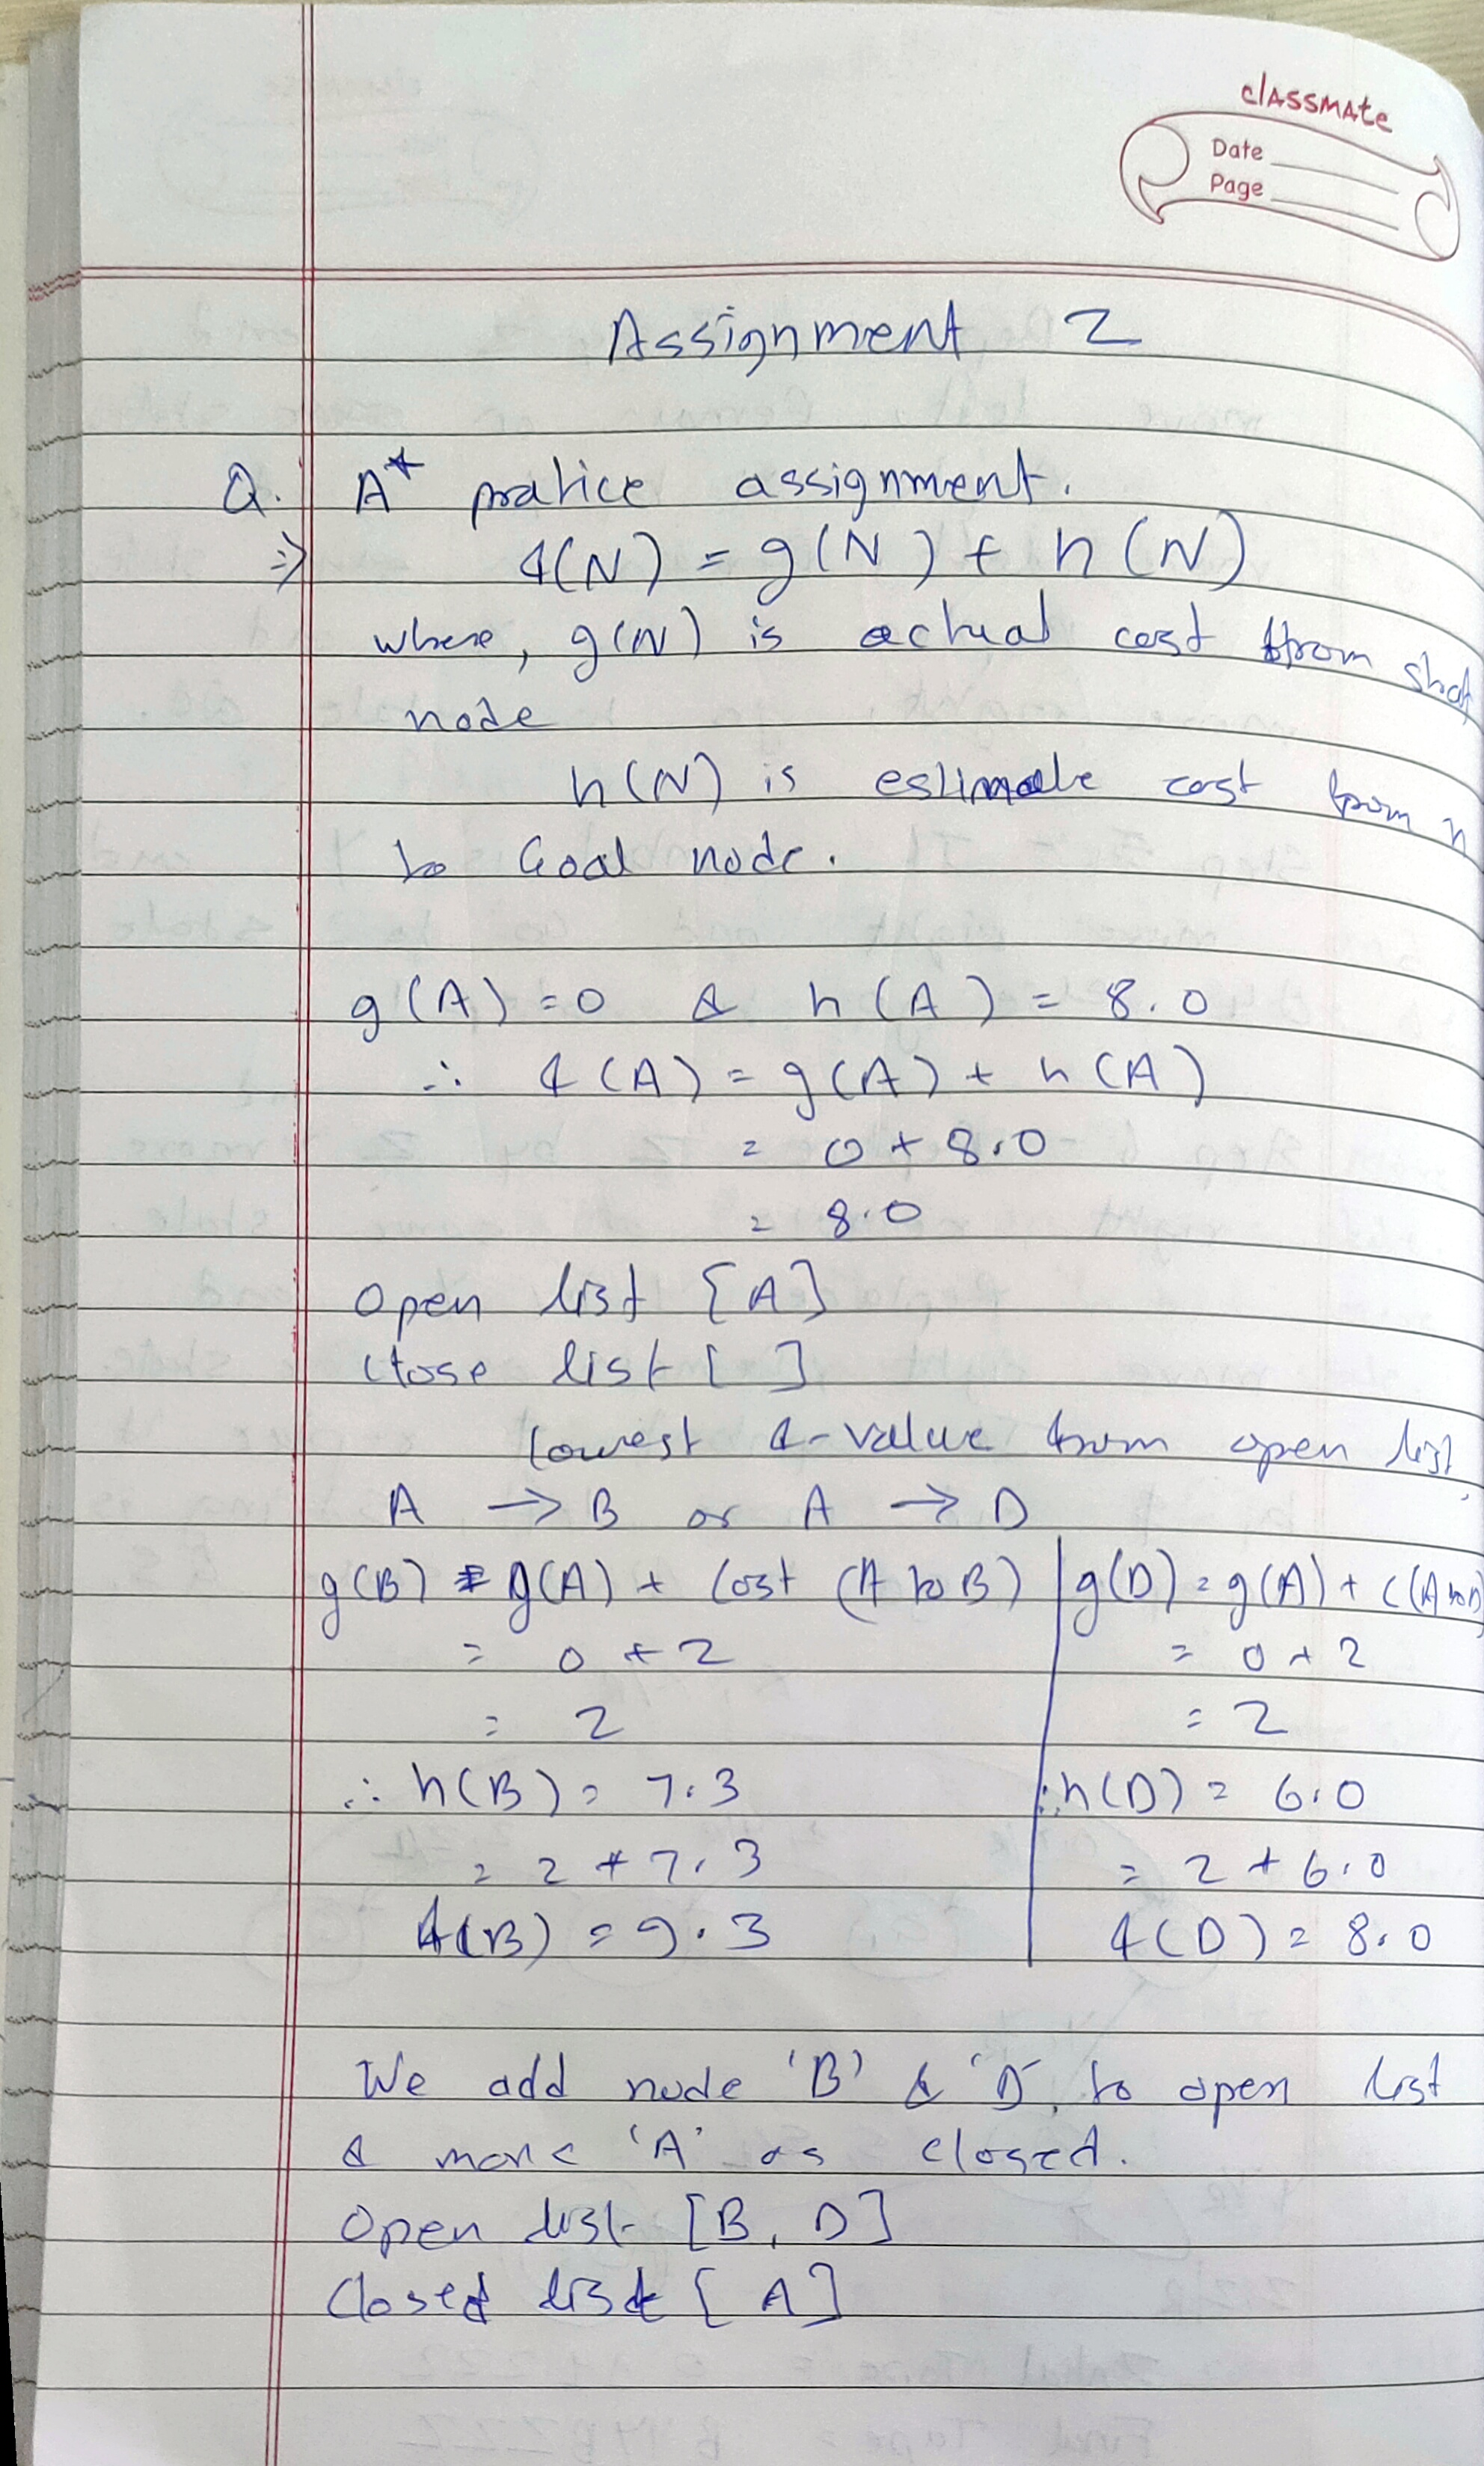 classmate
Date
Page
Assignment 2
Q. A* pratice assignment.
=> f(N) = g(N) + h(N)
where, g(N) is actual cost from start
node
h(N) is estimate cost from n
to Goal node.
g(A) = 0 & h(A) = 8.0
∴ f(A) = g(A) + h(A)
= 0 + 8.0
= 8.0
Open list [A]
Close list [ ]
lowest f-value from open list
A → B or A → D
g(B) = g(A) + Cost (A to B) | g(D) = g(A) + C(A to D)
= 0 + 2 | = 0 + 2
= 2 | = 2
∴ h(B) = 7.3 | ∴ h(D) = 6.0
= 2 + 7.3 | = 2 + 6.0
f(B) = 9.3 | f(D) = 8.0
We add node 'B' & 'D' to open list
& mark 'A' as closed.
Open list [B, D]
Closed list [A]